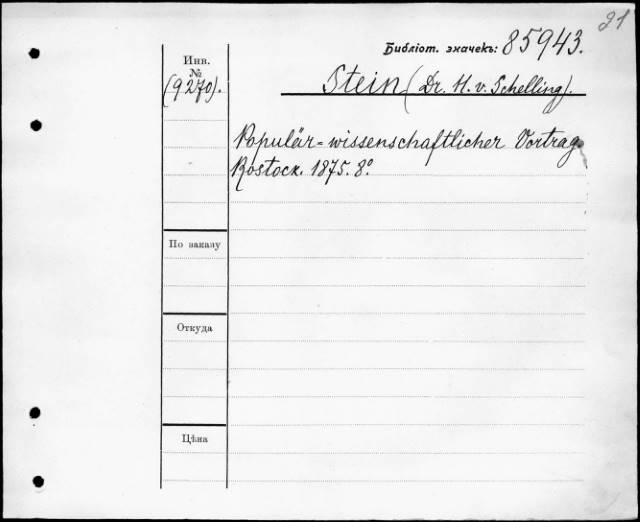 21
Библіот. значекъ: 85943.
Инв.
№
(9270).
Stein (Dr. H. v. Schelling).
Populär=wissenschaftlicher Vortrag.
Rostock. 1875. 8º
По заказу
Откуда
Цѣна